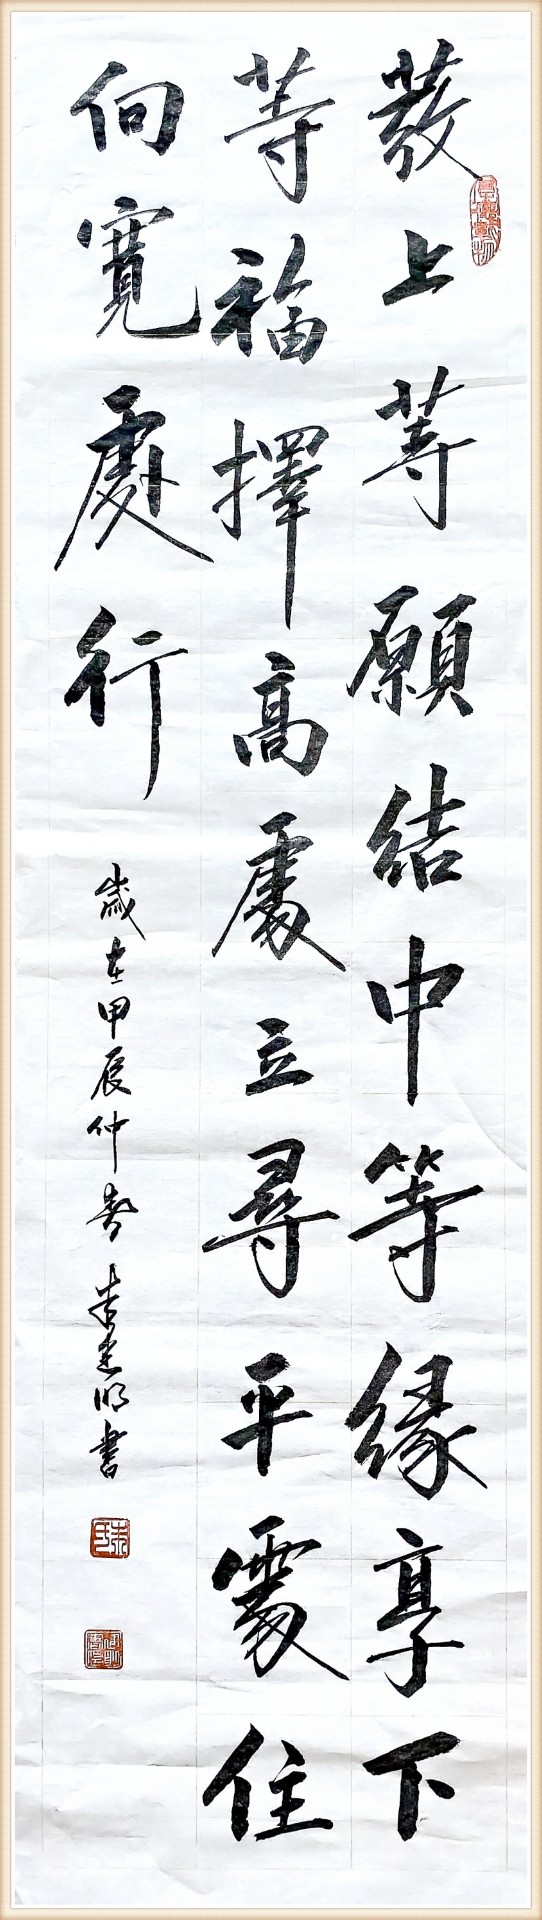 發上等願結中等緣享下
等福擇高處立尋平處住
向寬處行
歲在甲辰仲春 李建明書